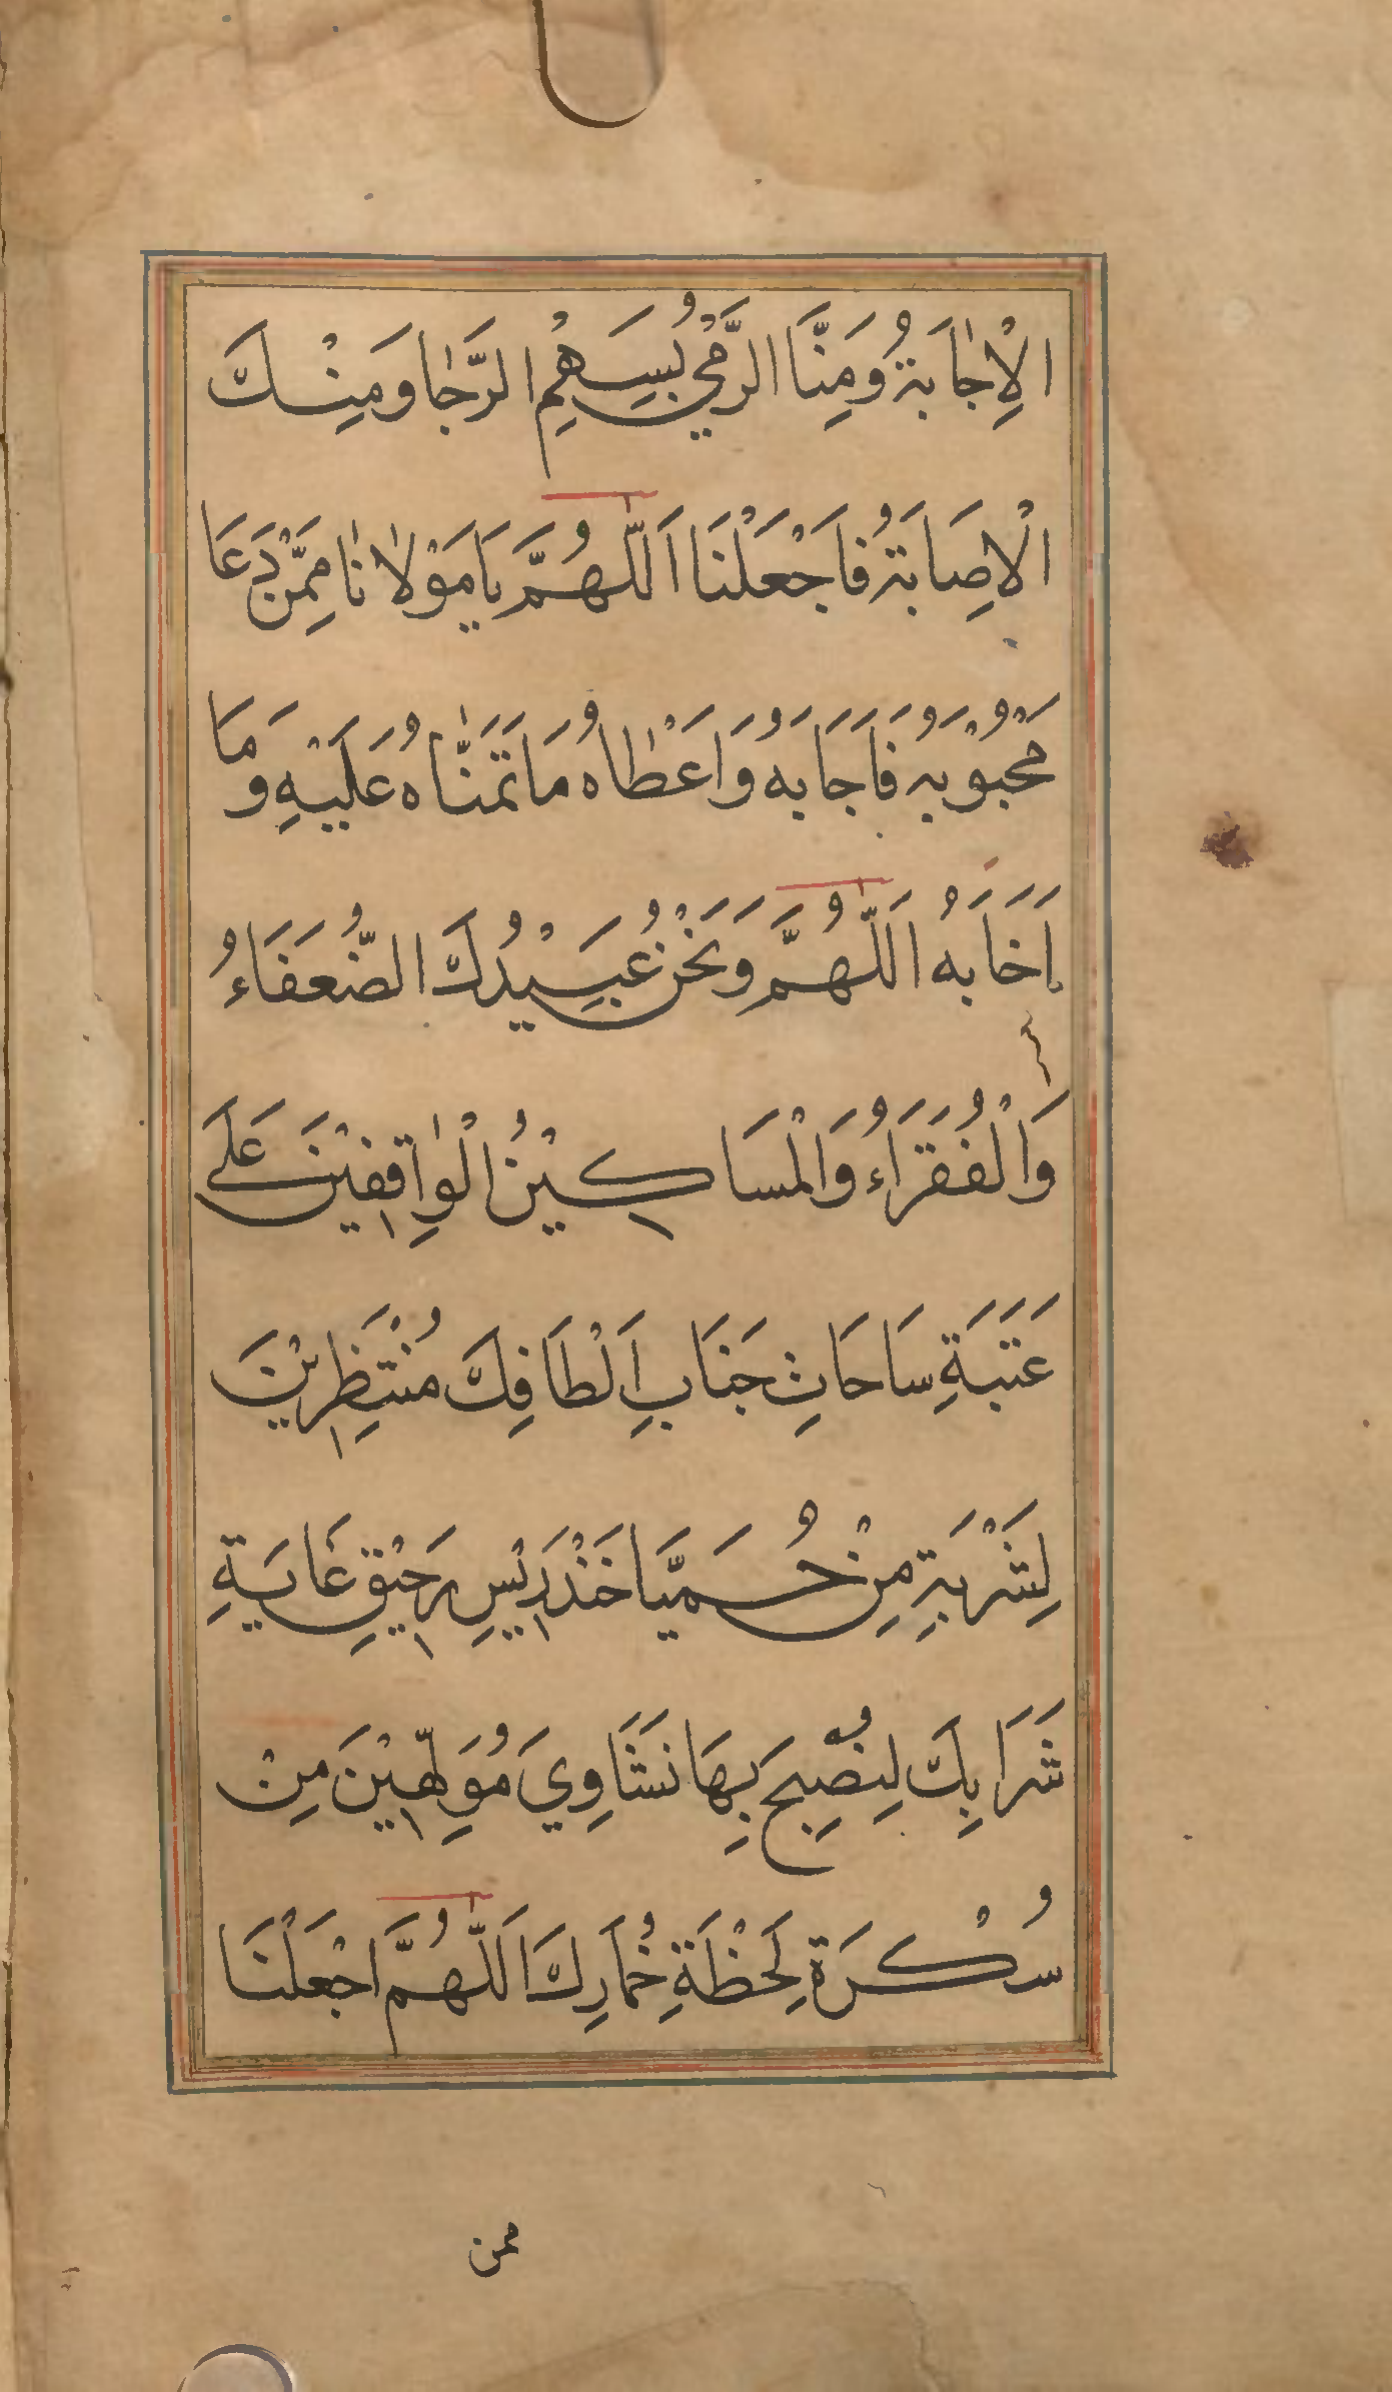 الْاِجٰابَةُ وَمِنَّا الرَّمْيُ بِسَهْمِ الرَّجٰا وَمِنْكَ
الْاِصَابَةُ فَاجْعَلْنَا اَللّٰهُمَّ يَا مَوْلٰانٰا مِمَّنْ دَعَا
مَحْبُوْبَهُ فَاَجَابَهُ وَاَعْطٰاهُ مَا تَمَنّٰاهُ عَلَيْهِ وَمَا
اَخَابَهُ اَللّٰهُمَّ وَنَحْنُ عُبَيْدُكَ الضُّعَفَاءُ
وَالْفُقَرَاءُ وَالْمَسَاكِيْنُ الْوٰاقِفِيْنَ عَلَى
عَتَبَةِ سَاحَاتِ جَنَابِ اَلْطَافِكَ مُنْتَظِرِيْنَ
لِشَرْبَةٍ مِنْ حُمَيَّا خَنْدَرِيْسِ رَحِيْقِ غَايَةِ
شَرَابِكَ لِنُصْبِحَ بِهَا نَشَاوِيَ مُوَلَّهِيْنَ مِنْ
سُكْرَةِ لَحْظَةِ خُمَارِكَ اَللّٰهُمَّ اجْعَلْنَا
ممن